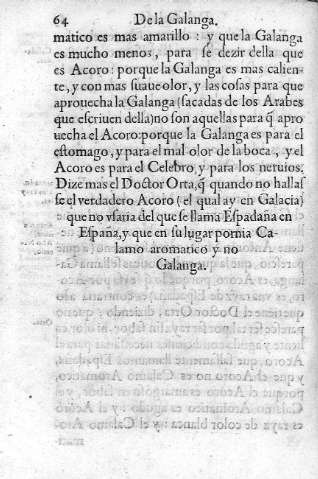 64 De la Galanga.
matico es mas amarillo : y que la Galanga
es mucho menos, para se dezir della que
es Acoro: porque la Galanga es mas calien-
te, y con mas suaue olor, y las cosas para que
aprouecha la Galanga (sacadas de los Arabes
que escriuen della) no son aquellas para q̃ apro
uecha el Acoro: porque la Galanga es para el
estomago, y para el mal olor de la boca, y el
Acoro es para el Celebro, y para los neruios.
Dize mas el Doctor Orta, q̃ quando no hallas
se el verdadero Acoro (el qual ay en Galacia)
que no vsaria del que se llama Espadaña en
España, y que en su lugar pornia Ca-
lamo aromatico y no
Galanga.